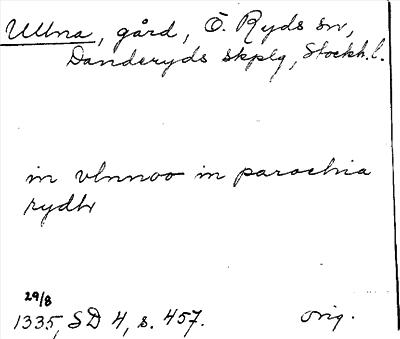 Ullna, gård, Ö. Ryds sn,
Danderyds skplg, Stockh. l.
in vlnnoo in parochia
rydh
29/8
1335, SD 4, s. 457. orig.